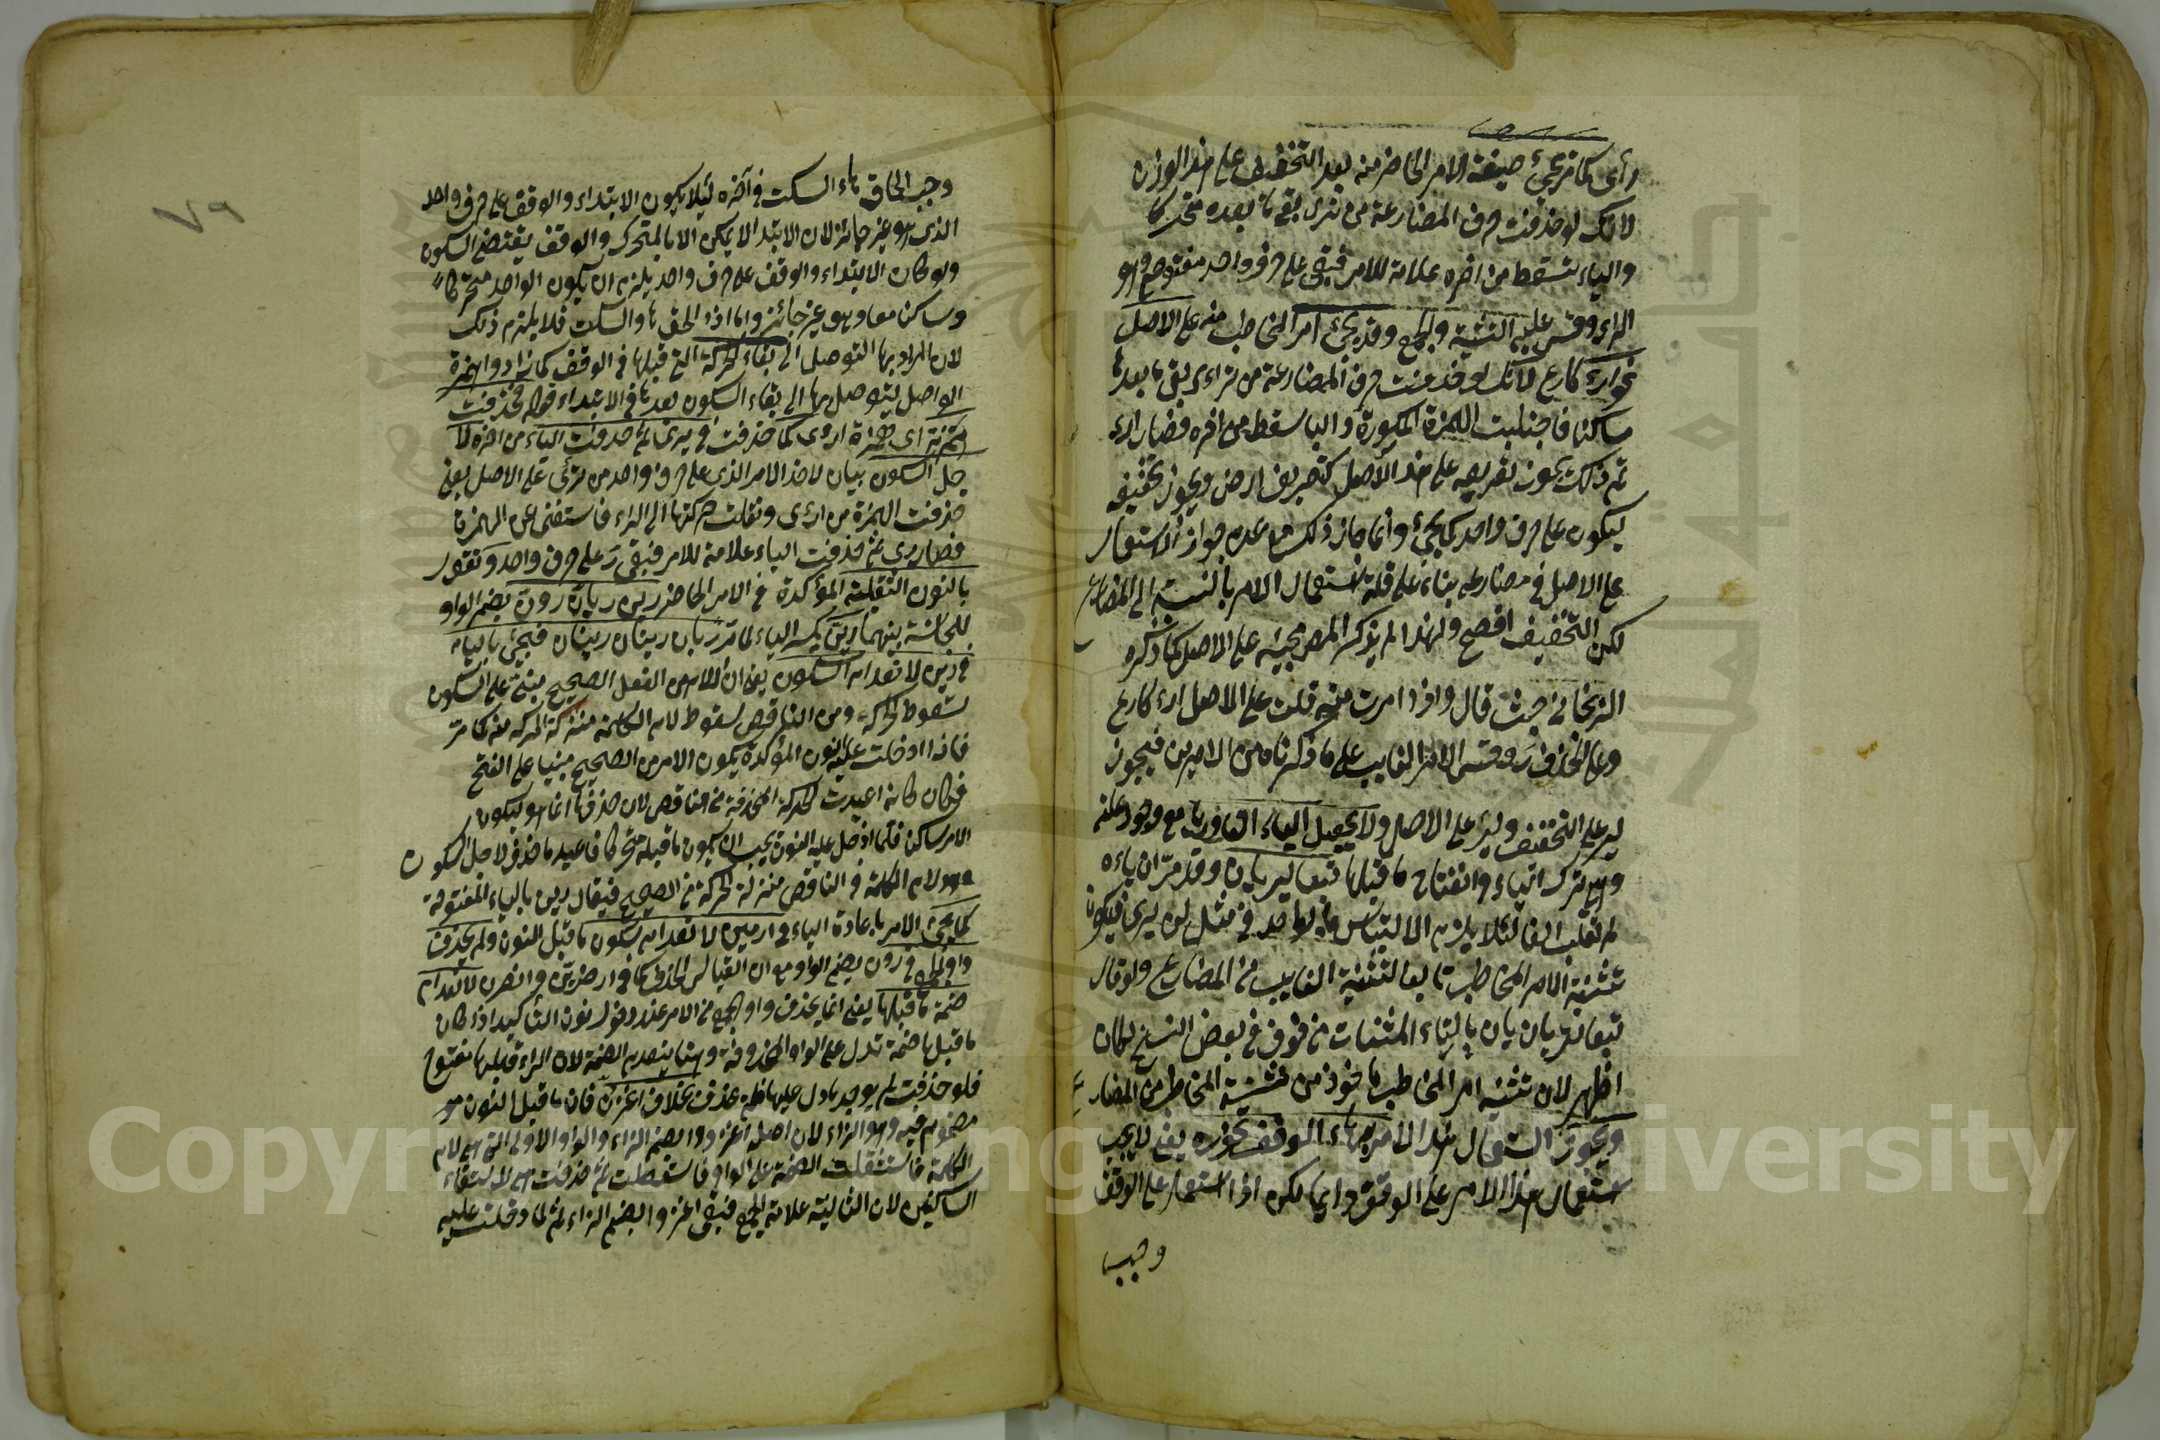 رأى كما ترى يجئ صيغة الامر الحاضر منه بعد التخفيف على هذا الوزن
لانك لو حذفت حرف المضارعة من ترى بقى ما بعده متحركا
والياء تسقط من اخره علامة للامر فيبقى على حرف واحد مفتوح وهو
الراء وقس عليه التثنية والجمع وقد يجئ امر المخاطب منه على الاصل
نحو ارء كارع لانك لو حذفت حرف المضارعة من ترأى بقى ما بعدها
ساكنا فاجتلبت الهمزة المكسورة والياء سقط من اخره فصار ارء
ثم ذلك يجوز تصريفه على هذا الاصل كتصريف ارض ويجوز تخفيفه
ليكون على حرف واحد كما يجئ وانما جاز ذلك مع عدم جواز الاستعمال
على الاصل في مضارعه بناء على قلة استعمال الامر بالنسبة الى المضارع
لكن التخفيف افصح ولهذا لم يذكر المص مجيئه على الاصل كما ذكره
الزنجاني حيث قال واذا امرت منه قلت على الاصل ارء كارع
وعلى الحذف رَ وقس الامر الغايب على ما ذكرناه من الامرين فيجوز
لير على التخفيف وليرء على الاصل ولا يجعل الياء الفا في ريا مع وجود علته
وهي تحرك الياء وانفتاح ما قبلها تبعا ليريان وقد مر ان ياءه
لم تقلب الفا لئلا يلزم الالتباس بالواحد في مثل لن يرى فيكون
تثنية الامر المخاطب تابعا لتثنية الغايب من المضارع ولو قال
تبعا لتريان بالتاء المثناة من فوق في بعض النسخ لكان
اظهر لان تثنية امر المخاطب ماخوذ من تثنية المخاطب من المضارع
ويجوز استعمال هذا الامر بهاء الوقف نحو ره يعني لا يجب
استعمال هذا الامر على الوقف دايما لكن اذا استعمل على الوقف
وجب
٧٩
وجب الحاق هاء السكت في آخره لئلا يكون الابتداء والوقف على حرف واحد
الذي هو غير جائز لان الابتداء لا يمكن الا بالمتحرك والوقف يقتضى السكون
ولو كان الابتداء والوقف على حرف واحد يلزم ان يكون الواحد متحركا
وساكنا معا وهو غير جائز واما اذا الحق هاء السكت فلا يلزم ذلك
لان المراد بها التوصل الى بقاء الحركة التي قبلها في الوقف كما زادوا همزة
الوصل ليتوصل بها الى بقاء السكون بعدها في الابتداء قوله فحذفت
همزته اى همزة ارءى كما حذفت في يرى ثم حذفت الياء من اخره لا
جل السكون بيان لاخذ الامر الذي على حرف واحد من ترئى على الاصل يعنى
حذفت الهمزة من ارءى ونقلت حركتها الى الراء فاستغنى عن الهمزة
فصار رى ثم حذفت الياء علامة للامر فبقى رَ على حرف واحد وتقول
بالنون الثقيلة المؤكدة في الامر الحاضر رين ريان رون بضم الواو
للمجانسة بينهما رين بكسر الياء لما مر ريان رينان رينان فيجئ بالياء
في رين لانعدام السكون يعني ان الامر من الفعل الصحيح مبني على السكون
لسقوط الحركة ومن الناقص لسقوط لام الكلمة منزلة الحركة منه كما مر
فاذا ادخلت عليه النون المؤكدة يكون الامر من الصحيح مبنيا على الفتح
فكان كانه اعيدت الحركة المحذوفة في الناقص لان حذفها انما هو ليكون
الامر ساكنا فلما دخل عليه النون يجب ان يكون ما قبله متحركا فاعيد ما حذف لاجل السكون
وهو لام الكلمة في الناقص منزلة الحركة في الصحيح فيقال رين بالياء المفتوحة
كما يجئ الامر باعادة الياء في ارمين لانعدام سكون ما قبل النون ولم يحذف
واو الجمع في رون بضم الواو مع ان القياس الحذف كما في ارضين وانصرن لانعدام
ضمة ما قبلها يعني انما يحذف واو الجمع في الامر عند دخول نون التأكيد اذا كان
ما قبلها ضمة تدل على الواو المحذوفة وهنا ينعدم الضمة لان الراء قبلها مفتوح
فلو حذفت لم يوجد ما دل عليها فلم تحذف بخلاف اغزن فان ما قبل النون هو
مضموم فيه وهو الزاء لان اصله اغزووا بضم الزاء والواو الاولى التي هي لام
الكلمة فاستثقلت الضمة على الواو فاسقطت ثم حذفت هي لالتقاء
الساكنين لان الثانية علامة الجمع فبقى اغزوا بضم الزاء ثم لما دخلت عليه